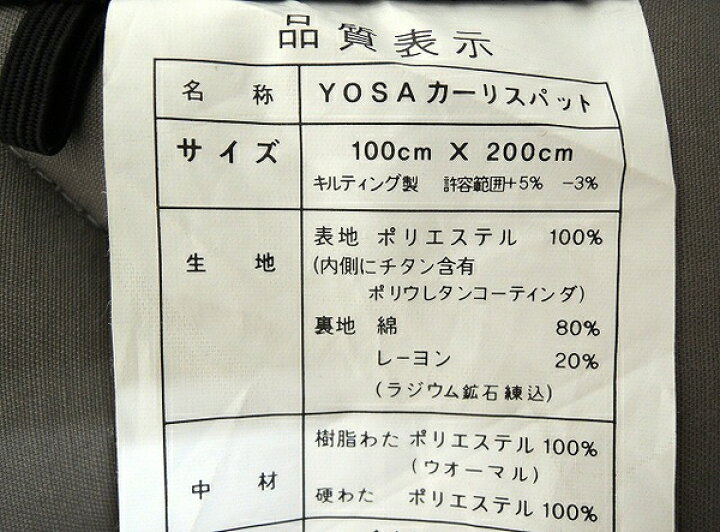 品質表示
名称 YOSAカーリスパット
サイズ 100cm X 200cm
キルティング製 許容範囲+5% -3%
生地 表地 ポリエステル 100%
(内側にチタン含有
ポリウレタンコーティンダ)
裏地 綿 80%
レーヨン 20%
(ラジウム鉱石練込)
中材 樹脂わた ポリエステル 100%
(ウオーマル)
硬わた ポリエステル 100%